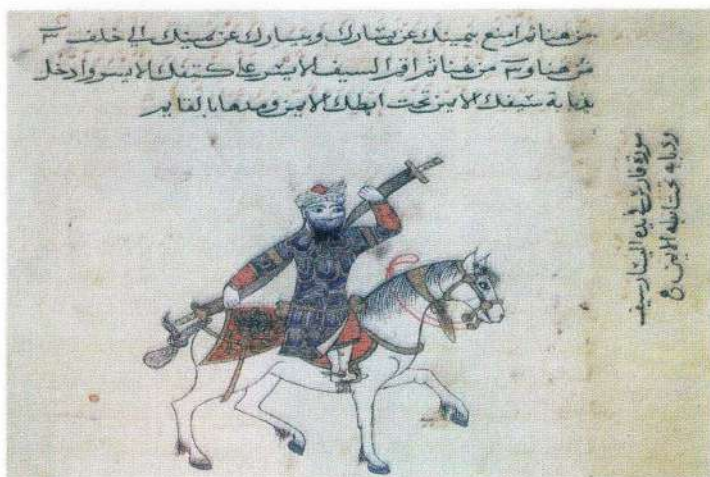 من هنا ثم امنع بيمينك عن يسارك وبيسارك عن يمينك الى خلف
من هنا و من هنا ثم اقر السيف الايسر على كتفك الايسر وادخل
ذبابة سيفك الايمن تحت ابطك الايمن ومدها بالقاير
صورة فارس في يده اليسار سيف
وذبابه تحت ابطه الايمن